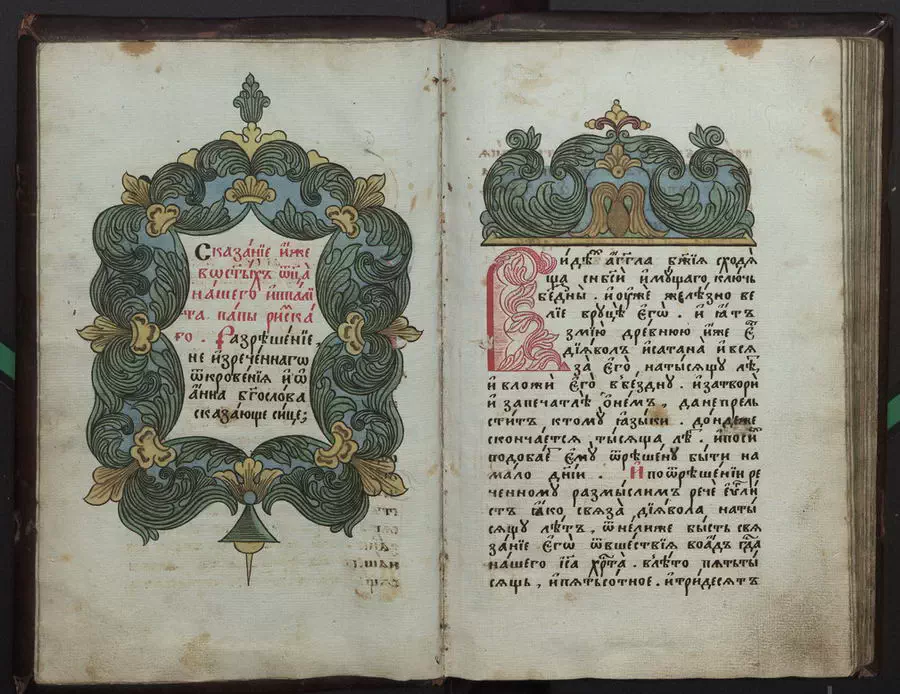 Сказа́нїе и҆́же
вост҃ы́хъ ѿц҃а̀
на́шего и҆ппалі́
та. папы ри́мска
го. Разрѣше́нїе,
не и҆зрече́ннагѡ
ѿкрове́нїя и҆ѡ
а́нна бг҃осло́ва
сказа́юще си́це;
Ви́дѣ а҆́гг҃ла бж҃їя сходѧ
ща сн҃бсѝ и҆му́щаго, клю́чь
бе́здны. и҆оу́же желѣ́зно ве
лїе вруцѣ̀ є҆гѡ̀. и҆ ꙗ҆́тъ
змі́ю древнюю и҆́же є҆́
дїѧ́волъ и҆сатана̀ и҆всѧ
за̀ є҆го̀, наты́сѧщу лѣ́,
и҆ вложѝ є҆го̀ вбе́здну. и҆затворѝ
и҆ запечатлѣ̀ ѻ҆не́мъ, дане прель
сти́тъ ктому̀ ꙗ҆зы́ки. до́ндеже
сконча́етсѧ, ты́сѧща лѣ́. и҆посй
подоба́е є҆му̀ ѿрѣ́шену бы́ти на
ма́ло дні́и. И҆ поѿрѣше́нїи ре
че́нному размы́слимъ рече̂ є҆ѵⷢ҇лі
стъ ꙗ҆́ко свѧза̀ дїѧ́вола наты́
сѧщу лѣ́тъ, ѿне́лиже бы́сть свѧ
за́нїе є҆гѡ̀ ѿвше́ствїѧ воа́дъ гдⷭ҇а
на́шего і҆с҃а хрⷭ҇та̀. влѣ́то пѧ́тьты́
сѧщь, и҆пѧтьсо́тное. и҆три́десѧтъ